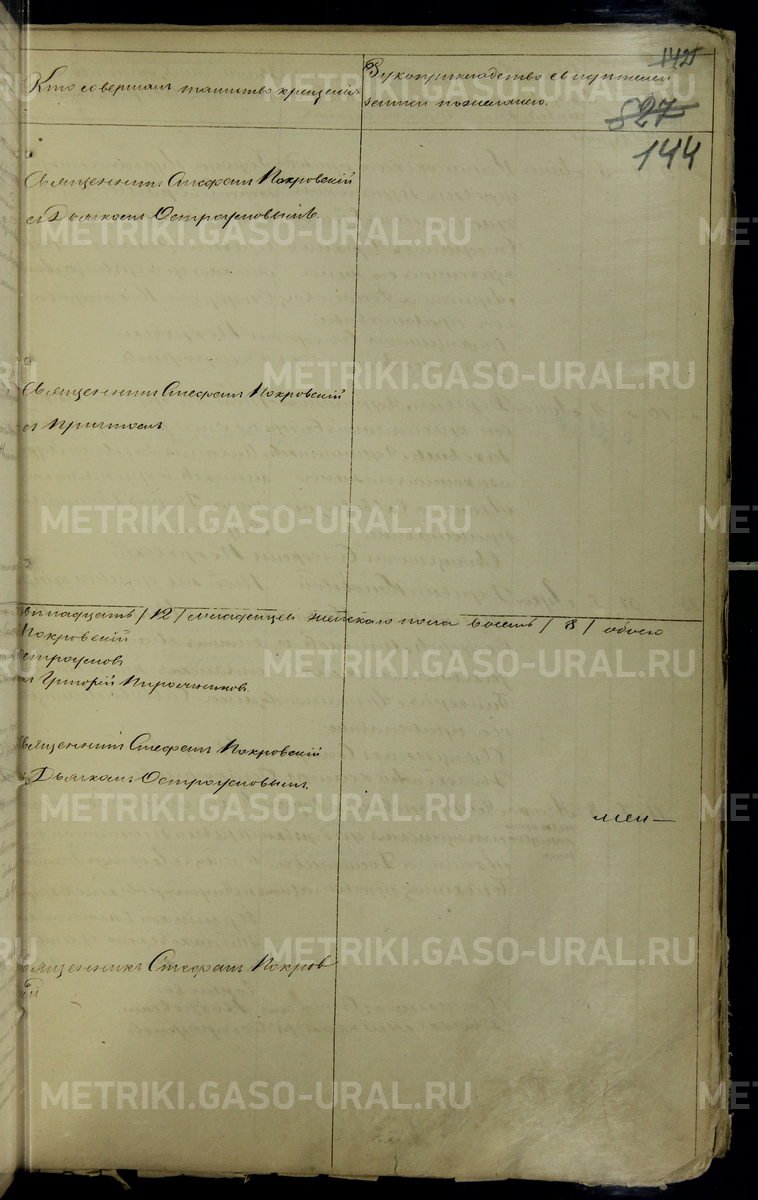 142
827
144
Кто совершал таинство крещения
Рукоприкладство свидетелей
записи по желанию.
Священник Стефан Покровский
съ Дьячком Остроумовымъ.
Священник Стефан Покровский
съ Причтом
двенадцать /12/ младенцев женскаго пола восемь /8/ обоего
Покровский
Остроумовъ
Григорий Пироженников.
Священник Стефан Покровский
съ Дьячком Остроумовым.
Священникъ Стефан Покров
ский
METRIKI.GASO-URAL.RU